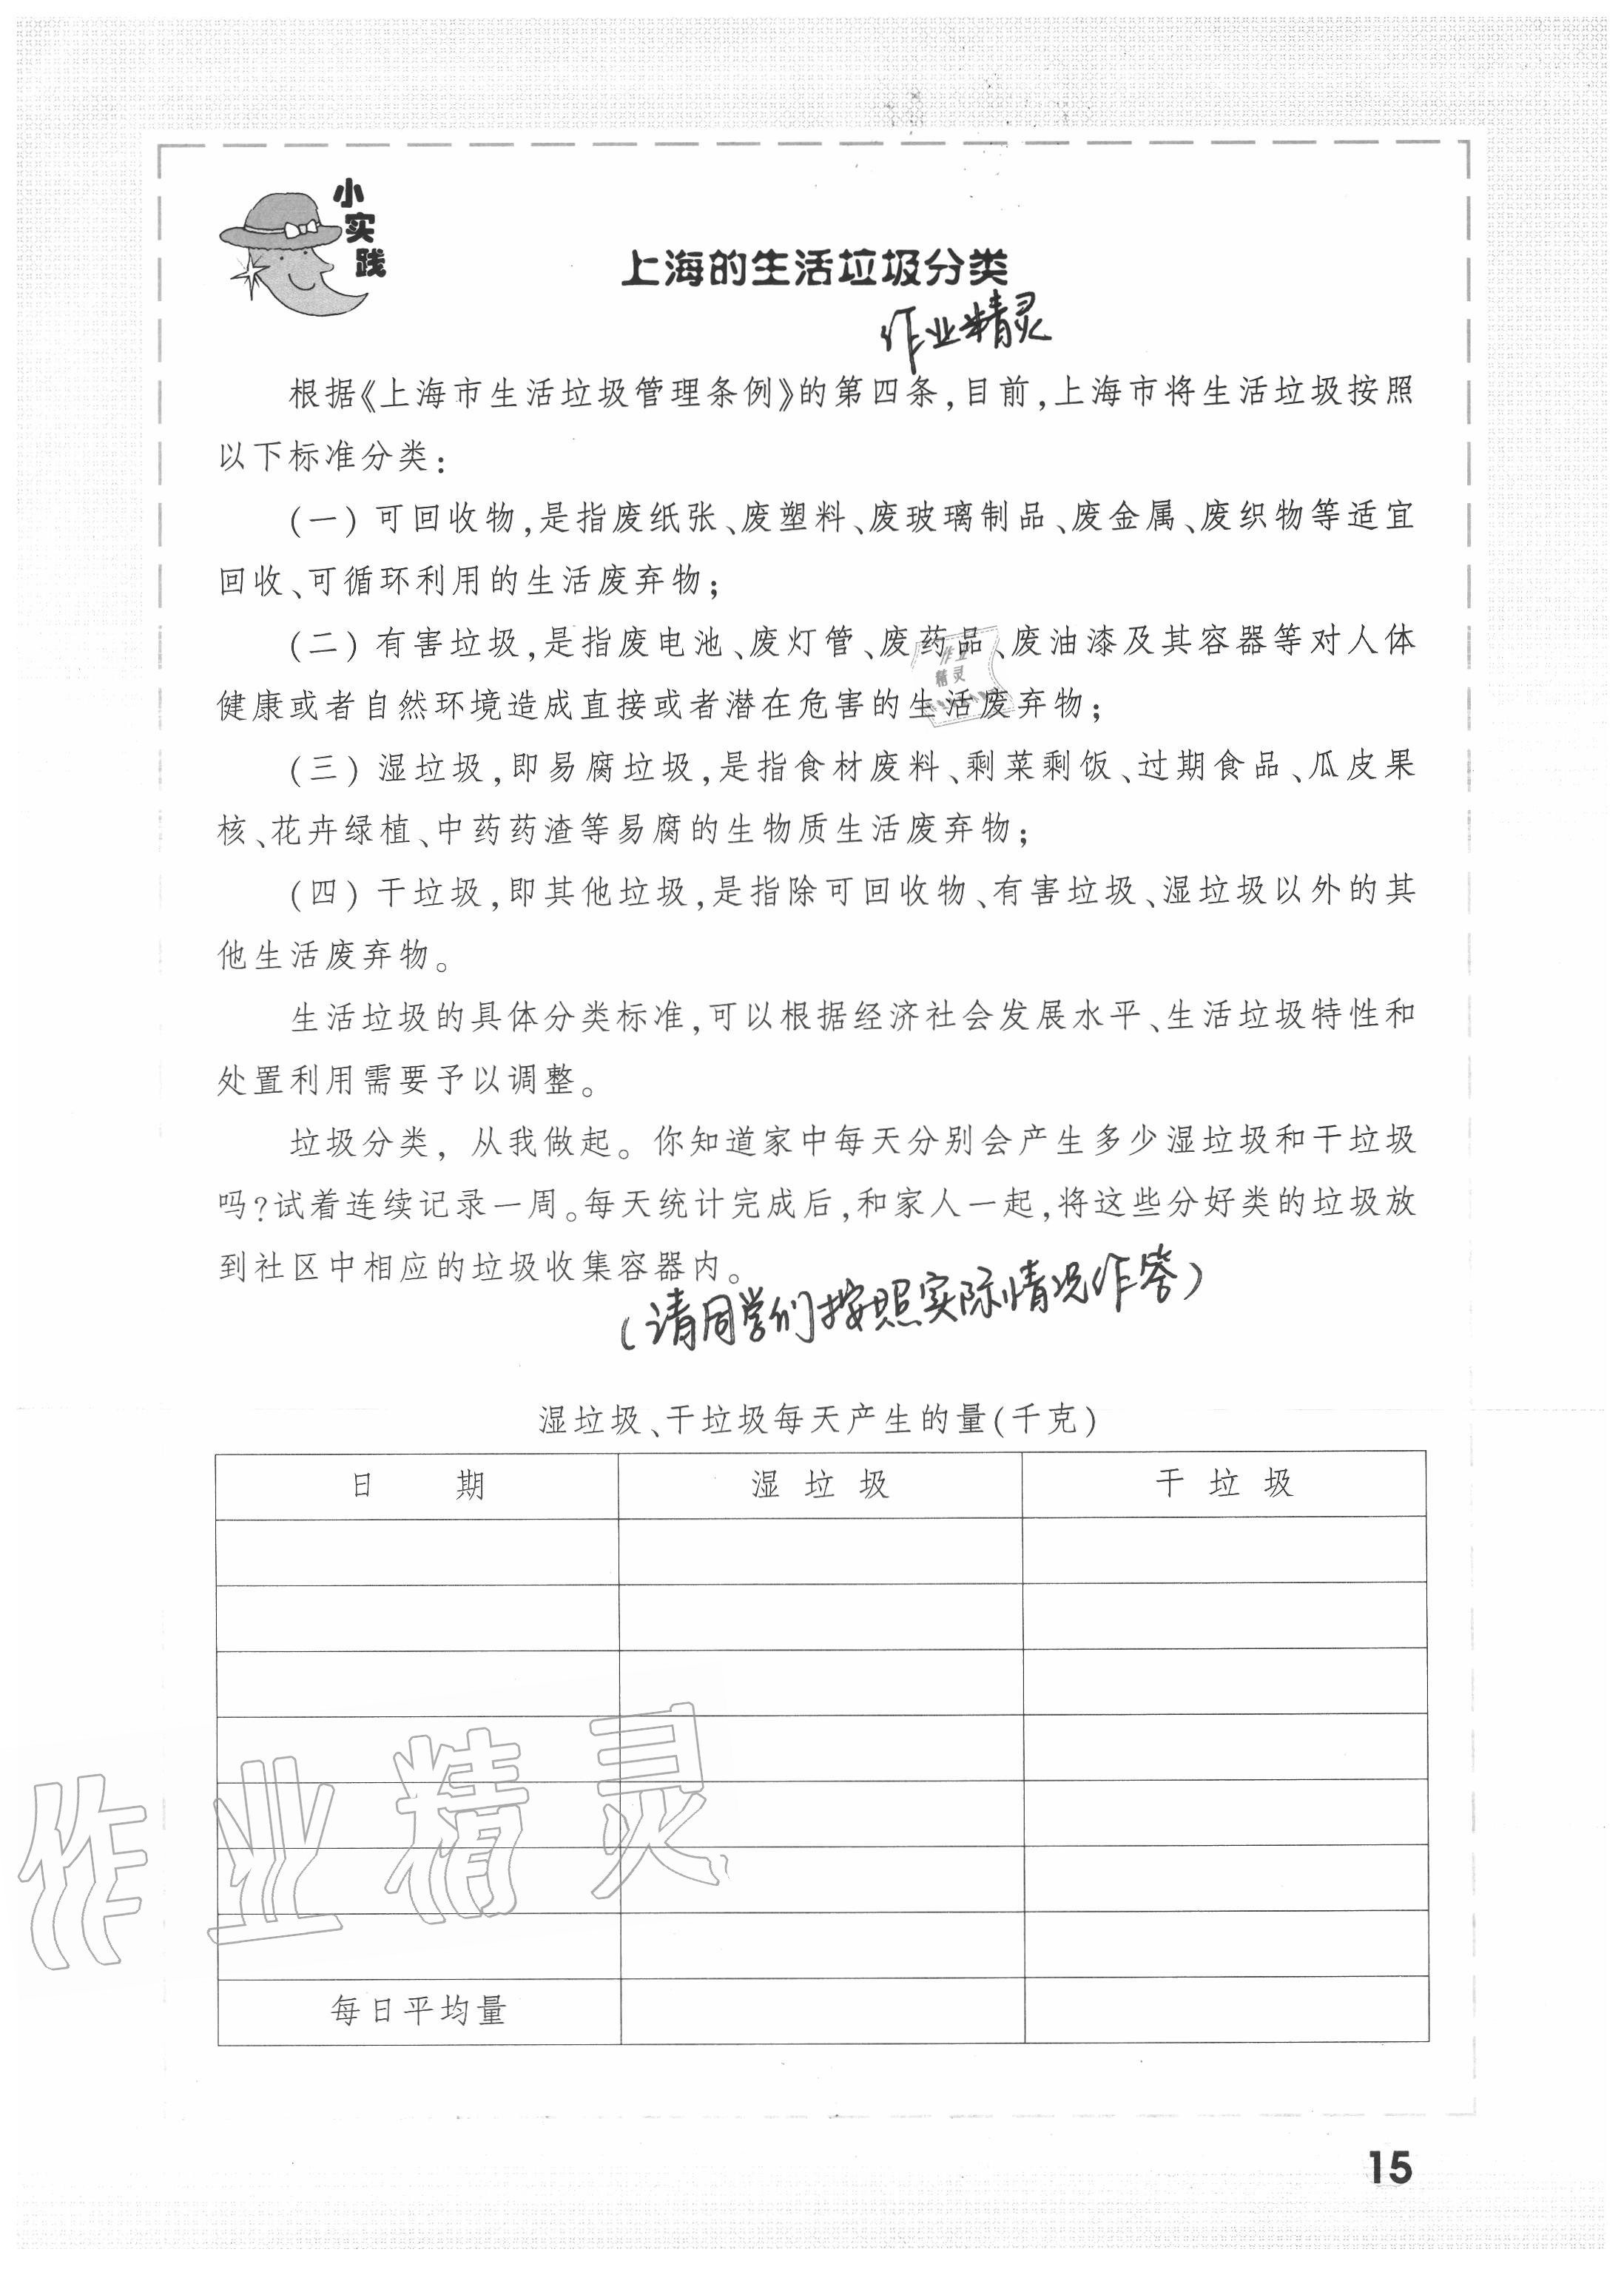 小实践
上海的生活垃圾分类
作业精灵
根据《上海市生活垃圾管理条例》的第四条,目前,上海市将生活垃圾按照
以下标准分类:
(一) 可回收物,是指废纸张、废塑料、废玻璃制品、废金属、废织物等适宜
回收、可循环利用的生活废弃物;
(二) 有害垃圾,是指废电池、废灯管、废药品、废油漆及其容器等对人体
健康或者自然环境造成直接或者潜在危害的生活废弃物;
作业
精灵
(三) 湿垃圾,即易腐垃圾,是指食材废料、剩菜剩饭、过期食品、瓜皮果
核、花卉绿植、中药药渣等易腐的生物质生活废弃物;
(四) 干垃圾,即其他垃圾,是指除可回收物、有害垃圾、湿垃圾以外的其
他生活废弃物。
生活垃圾的具体分类标准,可以根据经济社会发展水平、生活垃圾特性和
处置利用需要予以调整。
垃圾分类，从我做起。你知道家中每天分别会产生多少湿垃圾和干垃圾
吗?试着连续记录一周。每天统计完成后,和家人一起,将这些分好类的垃圾放
到社区中相应的垃圾收集容器内。
(请同学们按照实际情况作答)
湿垃圾、干垃圾每天产生的量(千克)
日 期 湿垃圾 干垃圾
每日平均量
作业精灵
15